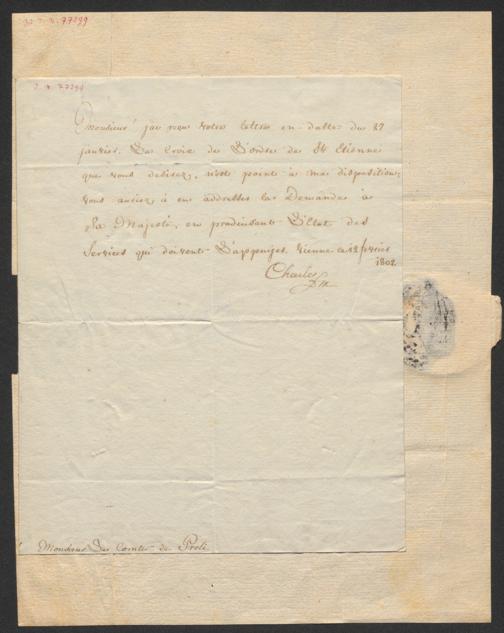 J. N. 77299
J. N. 77299
Monsieur! j'ai reçu votre lettre en datte du 27
janvier. La Croix de L'ordre de St Etienne
que vous desirez, n'est point à ma disposition;
vous auriez à en addresser la Demande à
Sa Majesté, en produisant L'Etat des
Services qui doivent L'appuyer. Vienne ce 12 fevrier
1802
Charles
Monsieur Le Comte de Proli